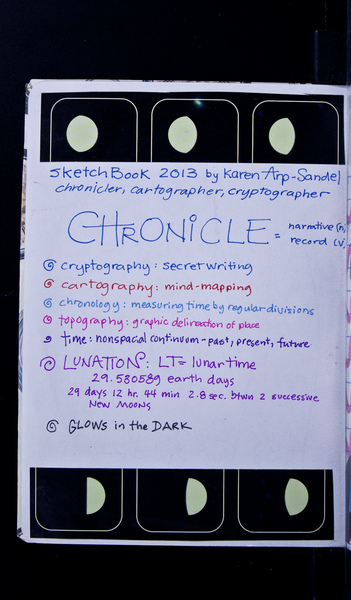 SketchBook 2013 by Karen Arp-Sandel
chronicler, cartographer, cryptographer
CHRONICLE = narrative (n,
record (v,
cryptography: secret writing
cartography: mind-mapping
chronology: measuring time by regular divisions
topography: graphic delineation of place
time: nonspacial continuom - past, present, future
LUNATION: LT= lunar time
29.530589 earth days
29 days 12 hr. 44 min 2.8 sec. btwn 2 successive
New Moons
GLOWS in the DARK